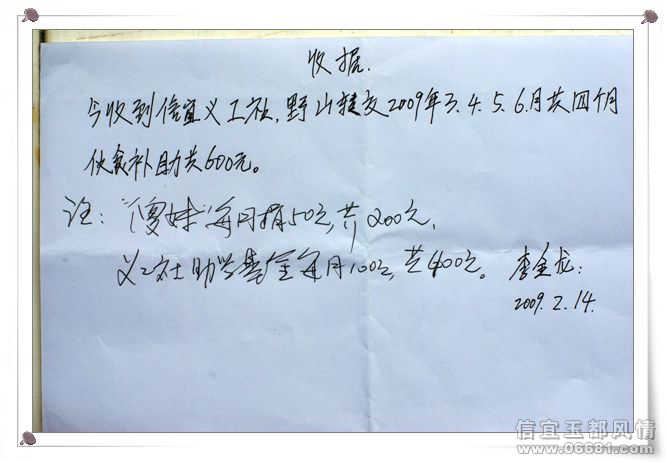 收据.
今收到信宜义工社,野山转交2009年3.4.5.6.月共四个月
伙食补助共600元。
注:"傻妹"每月捐50元,共200元,
义工社助学基金每月100元,共400元。李金龙:
2009.2.14.
信宜玉都风情
www.06681.com